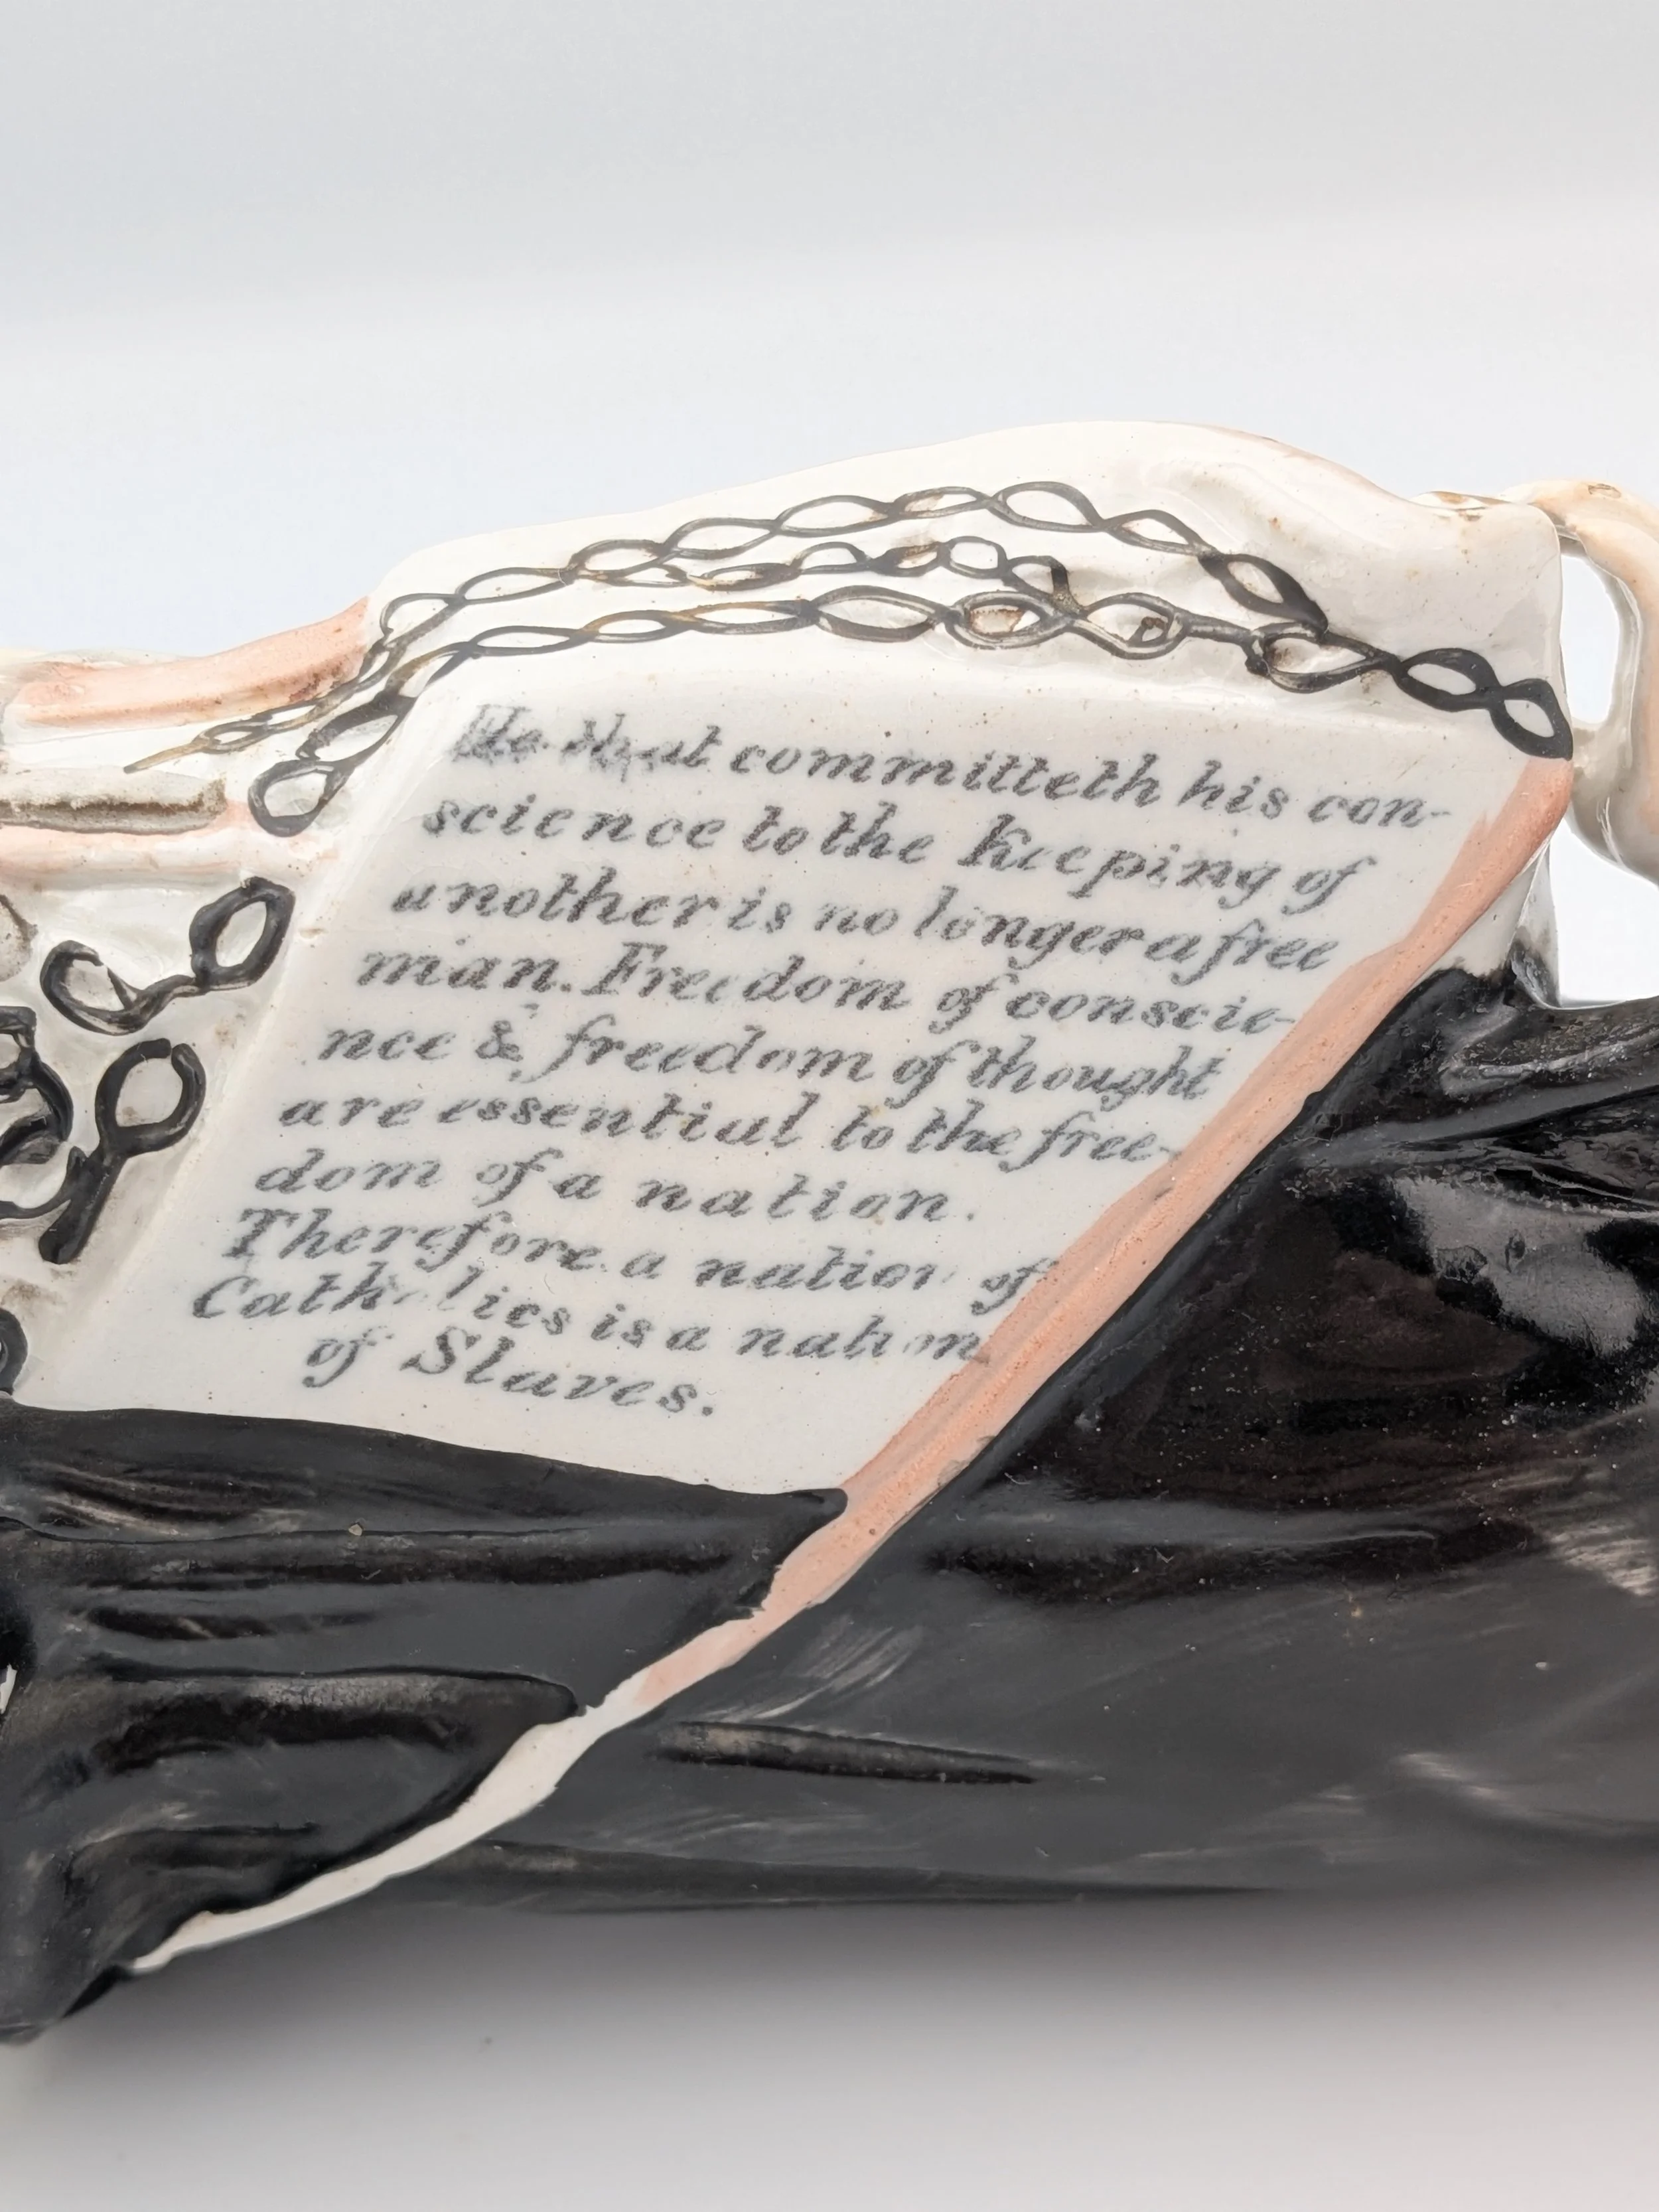 He that committeth his con-
science to the Keeping of
another is no longer a free
man. Freedom of conscie-
nce & freedom of thought
are essential to the free-
dom of a nation.
Therefore a nation of
Catholics is a nation
of Slaves.